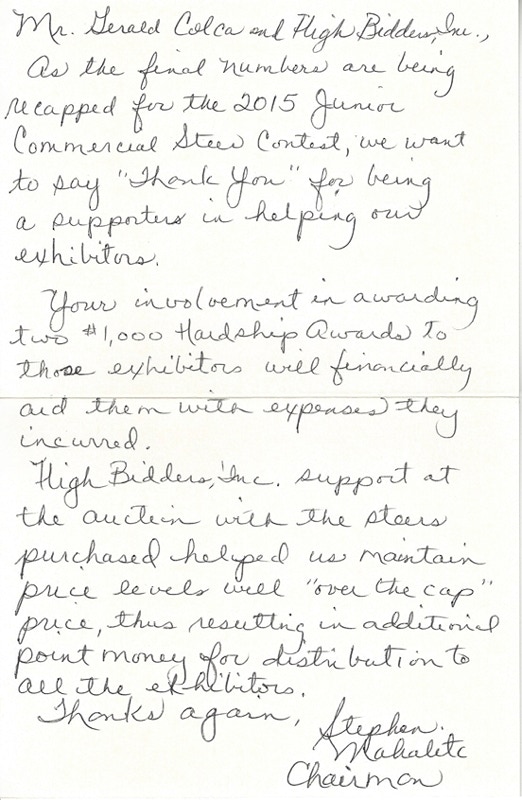 Mr. Gerald Colca and High Bidders, Inc.,
As the final numbers are being
recapped for the 2015 Junior
Commercial Steer Contest, we want
to say "Thank You" for being
a supporters in helping our
exhibitors.
Your involvement in awarding
two $1,000 Hardship Awards to
those exhibitors will financially
aid them with expenses they
incurred.
High Bidders, Inc. support at
the auction with the steers
purchased helped us maintain
price levels well "over the cap"
price, thus resulting in additional
point money for distribution to
all the exhibitors.
Thanks again,
Stephen
Mahalitc
Chairman